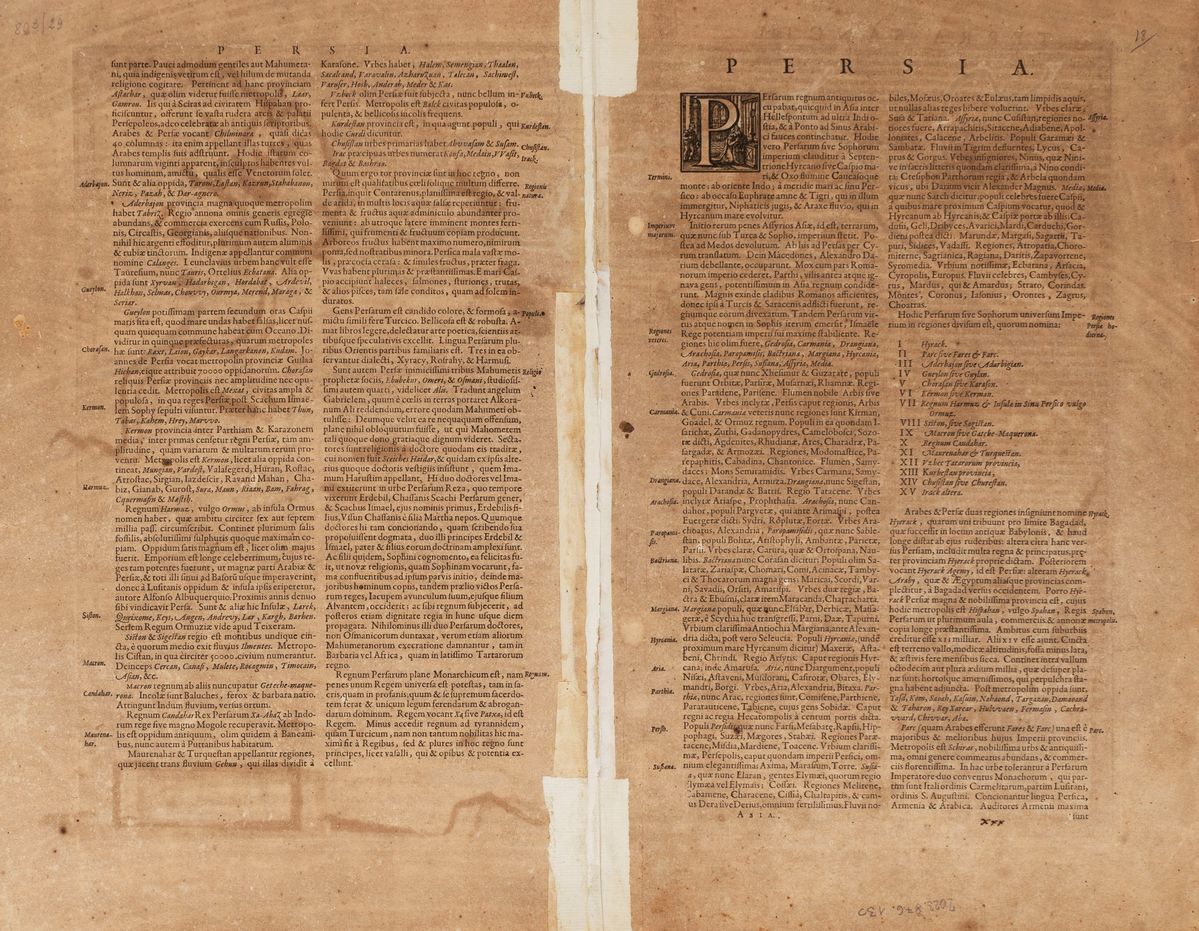 PERSIA.
sunt parte. Pauci admodum gentiles aut Mahumeta-
ni, quia indigenis vetitum est, vel hilum de mutanda
religione cogitare. Pertinent ad hanc provinciam
Astachar, quæ olim videtur fuisse metropolis, Laar,
Gamron. Iis qui à Sciras ad civitatem Hispahan pro-
ficiscuntur, offerunt se vasta rudera arcis & palatii
Persepoleos, adeo celebratæ ab antiquis scriptoribus.
Arabes & Persæ vocant Chilminara, quasi dicas
40 columnas: ita enim appellant istas turres, quas
Arabes templis suis adstruunt. Hodie istarum co-
lumnarum viginti apparent, insculptos habentes vul-
tus hominum, amictu, qualis esse Venetorum solet.
Sunt & alia oppida, Taron, Lastan, Kazrun, Stahabanon,
Neriz, Pazah, & Dar-agnero.
Aderbajon provincia magna quoque metropolim
habet Tabriz. Regio annona omnis generis egregie
abundans, & commercia exercens cum Russis, Polo-
nis, Circassiis, Georgianis, aliisque nationibus. Non-
nihil hic argenti effoditur, plurimum autem aluminis
& rubiæ tinctorum. Indigenæ appellantur communi
nomine Calanges. Leunclavius urbem hanc vult esse
Taüresium, nunc Tauris, Ortelius Echatana. Alia op-
pida sunt Xyrvan, Hadarbigan, Hordabat, Ardevil,
Halkhon, Selmas, Chowvy, Gurmya, Merend, Maraga, &
Seriar.
Gueylon potissimam partem secundum oras Caspii
maris sita est, quod mare undas habet falsas, licet nus-
quam quicquam commune habeat cum Oceano. Di-
viditur in quinque præfecturas, quarum metropoles
hæ sunt: Raxt, Laion, Gaykar, Langarkanon, Kudam. Jo-
annes de Persia vocat metropolin provinciæ Guilan
Hichan, eique attribuit 70000 oppidanorum. Chorasan
reliquis Persiæ provinciis nec amplitudine nec opu-
lentia cedit. Metropolis est Mexat, civitas ampla &
populosa, in qua reges Persiæ post Scachum Ismaë-
lem Sophy sepulti visuntur. Præter hanc habet Thun,
Tabas, Kahem, Hrey, Marwo.
Kermon provincia inter Parthiam & Karazonem
media, inter primas censetur regni Persiæ, tam am-
plitudine, quam variarum & multarum rerum pro-
ventu. Metropolis est Kermon, licet alia oppida con-
tineat, Mungian, Vardest, Valasegerd, Huran, Rostac,
Arrostac, Sirgian, Iazdescir, Ravand Mahan, Cha-
biz, Gianab, Gurost, Sura, Maun, Riaan, Bam, Fahrag,
Cquermasin & Mastih.
Regnum Harmuz, vulgo Ormus, ab insula Ormus
nomen habet, quæ ambitu circiter sex aut septem
millia pass. circumscribit. Continet plurimum salis
fossilis, absolutissimi sulphuris quoque maximam co-
piam. Oppidum satis magnum est, licet olim majus
fuerit. Emporium est longe celeberrimum, cujus re-
ges tam potentes fuerunt, ut magnæ parti Arabiæ &
Persiæ, & toti illi sinui ad Basorû usque imperaverint,
donec à Lusitanis oppidum & insula ipsis eriperetur,
autore Alfonso Albuquerquio. Proximis annis denuo
sibi vindicavit Persa. Sunt & aliæ hic Insulæ, Larek,
Queixome, Keys, Angen, Andrevy, Lar, Kargh, Barhen.
Seriem Regum Ormuziæ vide apud Texeram.
Siston & Sigestan regio est montibus undique cin-
cta, è quorum medio exit fluvius Ilmentes. Metropo-
lis Cistan, in qua circiter 50000. civium numerantur.
Deinceps Cercan, Canasi, Mulete, Rocagmin, Timocain,
Asian, &c.
Macron regnum ab aliis nuncupatur Getche-maque-
rona. Incolæ sunt Baluches, ferox & barbara natio.
Attingunt Indum fluvium, versus ortum.
Regnum Candahar Rex Persarum Xa-Abaz ab Indo-
rum rege sive magno Mogole recuperavit. Metropo-
lis est oppidum antiquum, olim quidem à Baneani-
bus, nunc autem à Puttanibus habitatum.
Maurenahar & Turquestan appellantur regiones,
quæ jacent trans fluvium Gehun, qui illas dividit à
Aderbajon.
Gueylon.
Chorasan.
Kermon.
Harmuz.
Siston.
Macron.
Candahar.
Maurena-
har.
Karasone. Vrbes habet, Halem, Semengian, Thaalan,
Sacalcand, Varavalin, Azharuzuan, Talecan, Sachinest,
Varuser, Hosh, Anderab, Meder & Kat.
Vzbeck olim Persiæ fuit subjecta, nunc bellum in-
fert Persis. Metropolis est Balck civitas populosa, o-
pulenta, & bellicosis incolis frequens.
Kurdestan provincia est, in qua agunt populi, qui
hodie Curdi dicuntur.
Chusistan urbes primarias habet Ahwasom & Susam.
Irac præcipuas urbes numerat Koufa, Medain, VVasit,
Bagdat & Bashran.
Quum ergo tot provinciæ sint in hoc regno, non
mirum est qualitatibus cœli solique multum differre.
Persia, inquit Contarenus, planissima est regio, & val-
de arida, in multis locis aquæ falsæ reperiuntur: fru-
menta & fructus aquæ adminiculo abundanter pro-
veniunt: ab utroque latere imminent montes ferti-
lissimi, qui frumenti & fructuum copiam producunt.
Arboreos fructus habent maximo numero, nimirum
poma, sed nostratibus minora. Persica mala vastæ mo-
lis, præcocia cerasa, & similes fructus, præter fraga.
Vvas habent plurimas & præstantissimas. E mari Cas-
pio accipiunt haleces, salmones, sturiones, trutas,
& alios pisces, tam sale conditos, quam ad solem in-
duratos.
Gens Persarum est candido colore, & formosa, a-
mictu simili fere Turcico. Bellicosa est & robusta. A-
mat libros legere, delectatur arte poetica, scientiis ac
tibusque speculativis excellit. Lingua Persarum plu-
ribus Orientis partibus familiaris est. Tres in ea ob-
servantur dialecti, Xyracy, Rostrahy, & Harmus.
Sunt autem Persæ inimicissimi tribus Mahumetis
prophetæ sociis, Ebubekur, Omeri, & Osmani, studiosis-
simi autem quarti, videlicet Alis. Tradunt angelum
Gabrielem, quum è cœlis in terras portaret Alkora-
num Ali reddendum, errore quodam Mahumeti ob-
tulisse: Deumque velut ea re nequaquam offensum,
plane nihil obloquutum fuisse, ut qui Mahometem
tali quoque dono gratiaque dignum videret. Secta-
tores sunt religionis à doctore quodam eis traditæ,
cui nomen fuit Sceiches Haidar, & quidam ex ipsis alte-
rius quoque doctoris vestigiis insistunt, quem Ima-
mum Harustim appellant. Hi duo doctores vel Ima-
mi exstiterunt in urbe Persarum Reza, quo tempore
vixerunt Erdebil, Chassanis Scachi Persarum gener,
& Scachus Ismael, ejus nominis primus, Erdebilis fi-
lius, Vsun Chassanis è filia Martha nepos. Quumque
doctores hi tam concionando, quam scribendo sua
proposuissent dogmata, duo illi principes Erdebil &
Ismael, pater & filius eorum doctrinam amplexi sunt.
Ac filii quidem, Sophini cognomento, ea felicitas fu-
it, ut novæ religionis, quam Sophinam vocarunt, fa-
ma confluentibus ad ipsum parvis initio, deinde ma-
joribus hominum copiis, tandem prælio victos Persa-
rum reges, Iactupem avunculum suum, ejusque filium
Alvantem, occiderit: ac sibi regnum subjecerit, ad
posteros etiam dignitate regia in hunc usque diem
propagata. Nihilominus illi duo Persarum doctores,
non Osmanicorum duntaxat, verum etiam aliorum
Mahumetanorum execratione damnantur, tam in
Barbaria vel Africa, quam in latissimo Tartarorum
regno.
Regnum Persarum plane Monarchicum est, nam
penes unum Regem universa est potestas, tam in sa-
ceris, quam in profanis, quum & se supremum sacerdo-
tem ferat & unicum legum ferendarum & abrogan-
darum dominum. Regem vocant Xa sive Patxa, id est
Regem. Minus accedit regnum ad tyrannidem,
quam Turcicum, nam non tantum nobilitas hic ma-
ximi fit à Regibus, sed & plures in hoc regno sunt
principes, licet vasalli, qui & opibus & potentia ex-
cellunt.
Vzbeck.
Kurdestan.
Chusistan.
Irack.
Regionis
natura.
Populi.
Religio
Regnum.
PERSIA.
PErsarum regnum antiquitus oc-
cupabat, quicquid in Asia inter
Hellespontum ad ultra Indro-
stia, & à Ponto ad Sinus Arabi-
ci fauces continebatur. Hodie
vero Persarum sive Sophorum
imperium clauditur à Septen-
trione Hyrcano sive Caspio ma-
ri, & Oxo flumine Caucasoque
monte: ab oriente Indo; à meridie mari ac sinu Per-
sico: ab occasu Euphrate amne & Tigri, qui in illum
immergitur, Niphaticis jugis, & Araxe fluvio, qui in
Hyrcanum mare evolvitur.
Initio rerum penes Assyrios Asiæ, id est, terrarum,
quæ nunc sub Turca & Sopho, imperium stetit. Po-
stea ad Medos devolutum. Ab his ad Persas per Cy-
rum translatum. Dein Macedones, Alexandro Da-
rium debellante, occuparunt. Mox cum pars Roma-
norum imperio cederet, Parthi, vilis antea atque ig-
nava gens, potentissimum in Asia regnum condide-
runt. Magnis exinde cladibus Romanos afficientes,
donec ipsi à Turcis & Saracenis adflicti fuerunt, re-
gnumque eorum divexatum. Tandem Persarum vir-
tus atque nomen in Sophis iterum emersit, Ismaële
Rege potentiam imperii sui maxime stabiliente. Re-
giones hic olim fuere, Gedrosia, Carmania, Drangiana,
Arachosia, Paropamisus, Bactriana, Margiana, Hyrcania,
Aria, Parthia, Persis, Susiana, Assyria, Media.
Gedrosia, quæ nunc Xhesimur & Guzrate, populi
fuerunt Orbitæ, Parsiræ, Musarnæi, Rhamnæ. Regi-
ones Paradene, Parisene. Flumen nobile Arbis sive
Arabis. Vrbes inclytæ, Persis caput regionis, Arbis
& Cuni. Carmania veteris nunc regiones sunt Kirman,
Goadel, & Ormuz regnum. Populi in ea quondam I-
sarichæ, Zuthi, Gadanopydres, Camelobosci, Sozo-
ræ dicti, Agdenites, Rhudianæ, Ares, Charadræ, Pa-
sargadæ, & Armozæi. Regiones, Modomastice, Pa-
repaphitis, Cabadina, Chantonice. Flumen, Samy-
daces: Mons Semiramidis. Vrbes Carmana, Samy-
dace, Alexandria, Armuza. Drangiana, nunc Sigestan,
populi Darandæ & Batrii. Regio Tatacene. Vrbes
inclytæ Ariaspe, Prophthasia. Arachosia, nunc Can-
dahor, populi Pargyetæ, qui ante Arimaspi, postea
Euergetæ dicti: Sydri, Roplutæ, Eortæ. Vrbes Ara-
chotus, Alexandria, Paropamisidis, quæ nunc Sable-
stan, populi Bolitæ, Aristophyli, Ambautæ, Parietæ,
Parsii. Vrbes claræ, Carura, quæ & Ortospana, Nau-
libis. Bactriana nunc Corasan dicitur: Populi olim Sa-
lataræ, Zariaspæ, Chomari, Comi, Acinacæ, Tamby-
ci & Thocarorum magna gens: Maricæ, Scordi, Var-
ni, Savadii, Orsiti, Amarispi. Vrbes duæ regiæ, Ba-
ctra & Ebusini, claræ item Maracanda, Charracharta.
Margiana populi, quæ nunc Elsabar, Derbicæ, Massa-
getæ, è Scythia huc transgressi, Parni, Daæ, Tapurni.
Vrbium clarissima Antiochia Margiana, ante Alexan-
dria dicta, post vero Seleucia. Populi Hyrcania, (unde
proximum mare Hyrcanum dicitur) Maxeræ, Asta-
beni, Chrindi. Regio Arsytis. Caput regionis Hyr-
cana; inde Amarusa. Aria, nunc Dargument, populi
Nisæi, Astaveni, Musdorani, Casirotæ, Obares, Ely-
mandri, Borgi. Vrbes, Aria, Alexandria, Bitaxa. Par-
thia, nunc Arac, regiones sunt, Comisene, Parthiene,
Parautticene, Tabiene, cujus gens Sobidæ. Caput
regni ac regia Hecatompolis à centum portis dicta.
Populi Persidis, quæ nunc Farsi, Mesabatæ, Rapsii, Hip-
pophagi, Suzæi, Mægores, Stabæi. Regiones Paræ-
tacene, Misdia, Mardiene, Toacene. Vrbium clarissi-
mæ, Persepolis, caput quondam imperii Persici, om-
nium elegantissima: Axima, Marasium, Torre. Susia-
na, quæ nunc Elaran, gentes Elymæi, quorum regio
Elymæa vel Elymais: Cossæi. Regiones Melitene,
Cabamene, Characene, Cissia, Chaltapitis, & cam-
us Dera sive Derius, omnium fertilissimus. Fluvii no-
ASIA.
Termini.
Imperium
majorum.
Regiones
veteres.
Gedrosia.
Carmania.
Drangiana.
Arachosia.
Paropami-
sis.
Bactriana.
Margiana.
Hyrcania.
Aria.
Parthia.
Persis.
Susiana.
biles, Mosæus, Oroates & Eulæus, tam limpidis aquis,
ut nullas alias reges bibere voluerint. Vrbes claræ,
Susa & Tariana. Assyriæ, nunc Cusistan, regiones no-
tiores fuere, Arrapachitis, Siracene, Adiabene, Apol-
loniates, Calacene, Arbelitis. Populi Garamæi &
Sambatæ. Fluvii in Tigrim defluentes, Lycus, Ca-
pros & Gorgus. Vrbes insigniores, Ninus, quæ Nini-
ve in sacris litteris quondam clarissima, à Nino condi-
ta: Ctesiphon Parthorum regia, & Arbela quondam
vicus, ubi Darium vicit Alexander Magnus. Mediæ,
quæ nunc Sarch dicitur, populi celebres fuere Caspii,
à quibus mare Caspium vocatum est, quod &
Hyrcanum ab Hyrcanis; & Caspiæ portæ ab illis: Ca-
dusii, Geli, Dribyces, Avarici, Mardi, Carduchi, Gor-
dieni postea dicti: Marunda, Margasi, Sagartii, Ta-
puri, Sidices, Vadassi. Regiones, Atropatia, Choro-
miterne, Sagrianica, Ragiana, Daritis, Zapavortene,
Syromedia. Vrbium notissimæ, Echatana, Arsacia,
Cyropolis, Europus. Fluvii celebres, Cambyses, Cy-
rus, Mardus, qui & Amardus; Strato, Corindas.
Montes, Coronus, Iasonius, Orontes, Zagrus,
Choatras.
Hodie Persarum sive Sophorum universum Impe-
rium in regiones divisum est, quorum nomina:
I Hyrack.
II Parc sive Fares & Farc.
III Aderbajon sive Adarbigian.
IV Gueylon sive Goylan.
V Chorasan sive Karason.
VI Ermon sive Kermon.
VII Regnum Harmuz & Insulæ in Sinu Persico vulgo
Ormuz.
VIII Siston, sive Sagistan.
IX Macron sive Gatche-Maquerona.
X Regnum Candahar.
XI Maurenahar & Turquestan.
XII Vzbec Tatarorum provincia,
XIII Kurdestan provincia,
XIV Chusistan sive Churestan.
XV Irack altera.
Arabes & Persæ duas regiones insigniunt nomine
Hyerack, quarum uni tribuunt pro limite Bagadad,
quæ successit in locum antiquæ Babylonis, & haud
longe distat ab ejus ruderibus: altera citra hanc ver-
sus Persiam, includit multa regna & principatus, præ-
ter provinciam Hyerack proprie dictam. Posteriorem
vocant Hyerack Agemy, id est Persiæ: alteram Hyerack
Araby, quæ & Ægyptum aliasque provincias com-
plectitur, à Bagadad versus occidentem. Porro Hye-
rack Persiæ magna & nobilissima provincia est, cujus
hodie metropolis est Hispahan, vulgo Spahan, Regis
Persarum ut plurimum aula, commerciis & annonæ
copia longe præstantissima. Ambitus cum suburbiis
creditur esse XI milliar. Alii XIV esse ajunt. Cincta
est terreno vallo, modicæ altitudinis, fossa minus lata,
& æstivis fere mensibus sicca. Continet intra vallum
octodecim aut plura aulium millia, quæ disuper pla-
na, hortosque amœnissimos, qui perpulchra sta-
gna habent adjuncta. Post metropolim oppida sunt.
Yasd, Kom, Saveh, Kaison, Nahoend, Targazan, Damavand
& Taharon, Rey Xarear, Hulvvaen, Fermasin, Cachea-
vvard, Chivvar, Aba.
Parc (quam Arabes efferunt Fares & Farc) una est è
majoribus & melioribus hujus Imperii provinciis.
Metropolis est Schiras, nobilissima urbs & antiquissi-
ma, omni genere commeatus abundans, & commer-
ciis florentissima. In hac urbe tolerantur à Persarum
Imperatore duo conventus Monachorum, qui par-
tim sunt Itali ordinis Carmelitarum, partim Lusitani,
ordinis S. Augustini. Concionantur lingua Persica,
Armenia & Arabica. Auditores Armenii maxima
sunt
Assyria.
Media.
Regiones
Persiæ ho-
diernæ.
Hyrack.
Spahan,
metropolis.
Parc.
xxx
18
823/29
2023.876.130